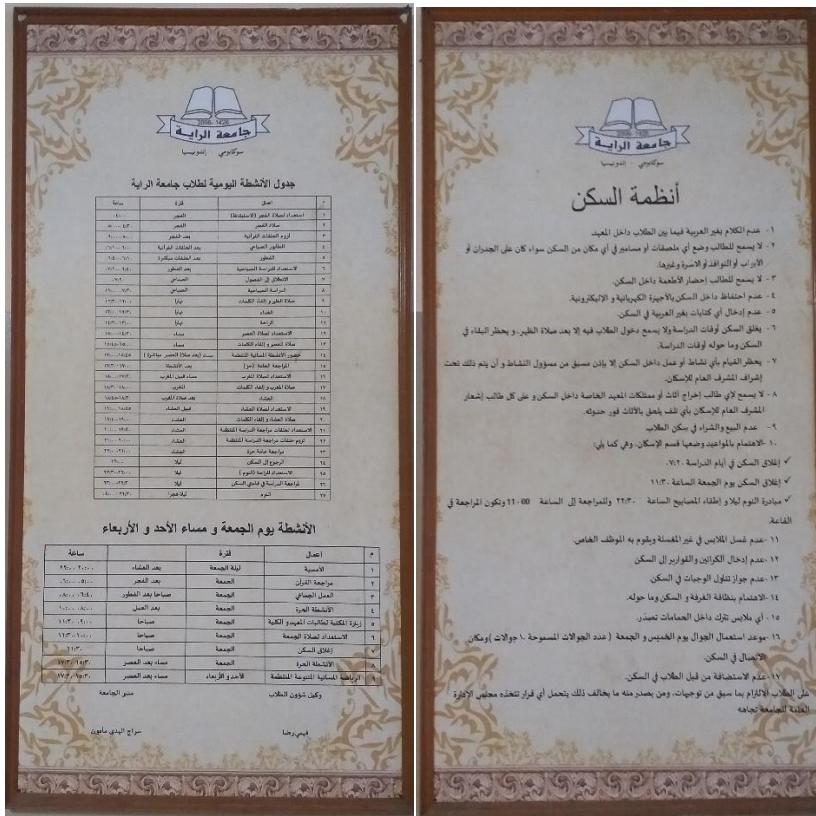 2006-1426
جامعة الراية
سوكابومي - إندونيسيا
جدول الأنشطة اليومية لطلاب جامعة الراية
م أعمال فترة ساعة
١ استعداد لصلاة الفجر (الاستيقاظ) الفجر
٢ صلاة الفجر الفجر
٣ لزوم الحلقات القرآنية بعد الفجر
٤ الطابور الصباحي بعد الحلقات القرآنية
٥ الفطور بعد الحلقات مباشرة
٦ الاستعداد للدراسة الصباحية بعد الفطور
٧ الانطلاق إلى الفصول الصباحي ٠٧:٢٠
٨ الدراسة الصباحية الصباحي
٩ صلاة الظهر و إلقاء الكلمات نهارا
١٠ الغداء نهارا
١١ الراحة نهارا
١٢ الاستعداد لصلاة العصر مساء
١٣ صلاة العصر و إلقاء الكلمات مساء
١٤ حضور الأنشطة المسائية المنتظمة (بعد صلاة العصر مباشرة)
١٥ المراجعة العامة (حر) بعد الأنشطة
١٦ الاستعداد لصلاة المغرب مساء قبيل المغرب
١٧ صلاة المغرب و إلقاء الكلمات المغرب
١٨ العشاء بعد صلاة المغرب
١٩ الاستعداد لصلاة العشاء قبيل العشاء
٢٠ صلاة العشاء و إلقاء الكلمات العشاء
٢١ الاستعداد لحلقات مراجعة الدراسة المنتظمة العشاء
٢٢ لزوم حلقات مراجعة الدراسة المنتظمة العشاء
٢٣ مراجعة عامة حرة العشاء
٢٤ الرجوع إلى السكن ليلا
٢٥ الاستعداد للراحة (النوم) ليلا
٢٦ المراجعة الدراسة في السكن ليلا
٢٧ النوم
الأنشطة يوم الجمعة و مساء الأحد و الأربعاء
م أعمال فترة ساعة
١ الأمسية ليلة الجمعة بعد العشاء
٢ مراجعة القرآن الجمعة بعد الفجر
٣ العمل الجماعي الجمعة صباحا بعد الفطور
٤ الأنشطة الحرة الجمعة بعد العمل
٥ زيارة المكتبة لطالبات المعهد و الكلية الجمعة صباحا
٦ الاستعداد لصلاة الجمعة الجمعة صباحا
٧ إغلاق السكن الجمعة صباحا ١١:٣٠
٨ الأنشطة الحرة الجمعة مساء بعد العصر
٩ الرياضة المسائية المتنوعة المنتظمة الأحد و الأربعاء مساء بعد العصر
وكيل شؤون الطلاب مدير الجامعة
فيمي رضا سراج الهدى مأمون
2006-1426
جامعة الراية
سوكابومي - إندونيسيا
أنظمة السكن
١- عدم الكلام بغير العربية فيما بين الطلاب داخل المعهد.
٢- لا يسمح للطالب وضع أي ملصقات أو مسامير في أي مكان من السكن سواء كان على الجدران أو
الأبواب أو النوافذ أو الأسرة وغيرها.
٣- لا يسمح للطالب إحضار الأطعمة داخل السكن.
٤- عدم احتفاظ داخل السكن بالأجهزة الكهربائية و الإليكترونية.
٥- عدم إدخال أي كتابات بغير العربية في السكن.
٦- يغلق السكن أوقات الدراسة ولا يسمح دخول الطلاب فيه إلا بعد صلاة الظهر. و يحظر البقاء في
السكن وما حوله أوقات الدراسة.
٧- يحظر القيام بأي نشاط أو عمل داخل السكن إلا بإذن مسبق من مسؤول النشاط و أن يتم ذلك تحت
إشراف المشرف العام للإسكان.
٨- لا يسمح لأي طالب إخراج أثاث أو ممتلكات المعهد الخاصة داخل السكن و على كل طالب إشعار
المشرف العام للإسكان بأي تلف يلحق بالأثاث فور حدوثه.
٩- عدم البيع والشراء في سكن الطلاب
١٠- الاهتمام بالمواعيد وضعها قسم الإسكان. وهي كما يلي:
✓ إغلاق السكن في أيام الدراسة ٠٧:٢٠
✓ إغلاق السكن يوم الجمعة الساعة ١١:٣٠
✓ مبادرة النوم ليلا و إطفاء المصابيح الساعة ٢٢:٣٠ وللمراجعة إلى الساعة 11:00 وتكون المراجعة في
القاعة.
١١- عدم غسل الملابس في غير المغسلة ويقوم به الموظف الخاص.
١٢- عدم إدخال الكراتين والقوارير إلى السكن
١٣- عدم جواز تناول الوجبات في السكن.
١٤- الاهتمام بنظافة الغرفة و السكن وما حوله.
١٥- أي ملابس تترك داخل الحمامات تصدّر.
١٦- موعد استعمال الجوال يوم الخميس و الجمعة ( عدد الجوالات المسموحة ١٠ جوالات ) ومكان
الاتصال في السكن.
١٧- عدم الاستضافة من قبل الطلاب في السكن.
على الطلاب الالتزام بما سبق من توجهات، ومن يصدر منه ما يخالف ذلك يتحمل أي قرار تتخذه مجلس الإدارة
العامة للجامعة تجاهه